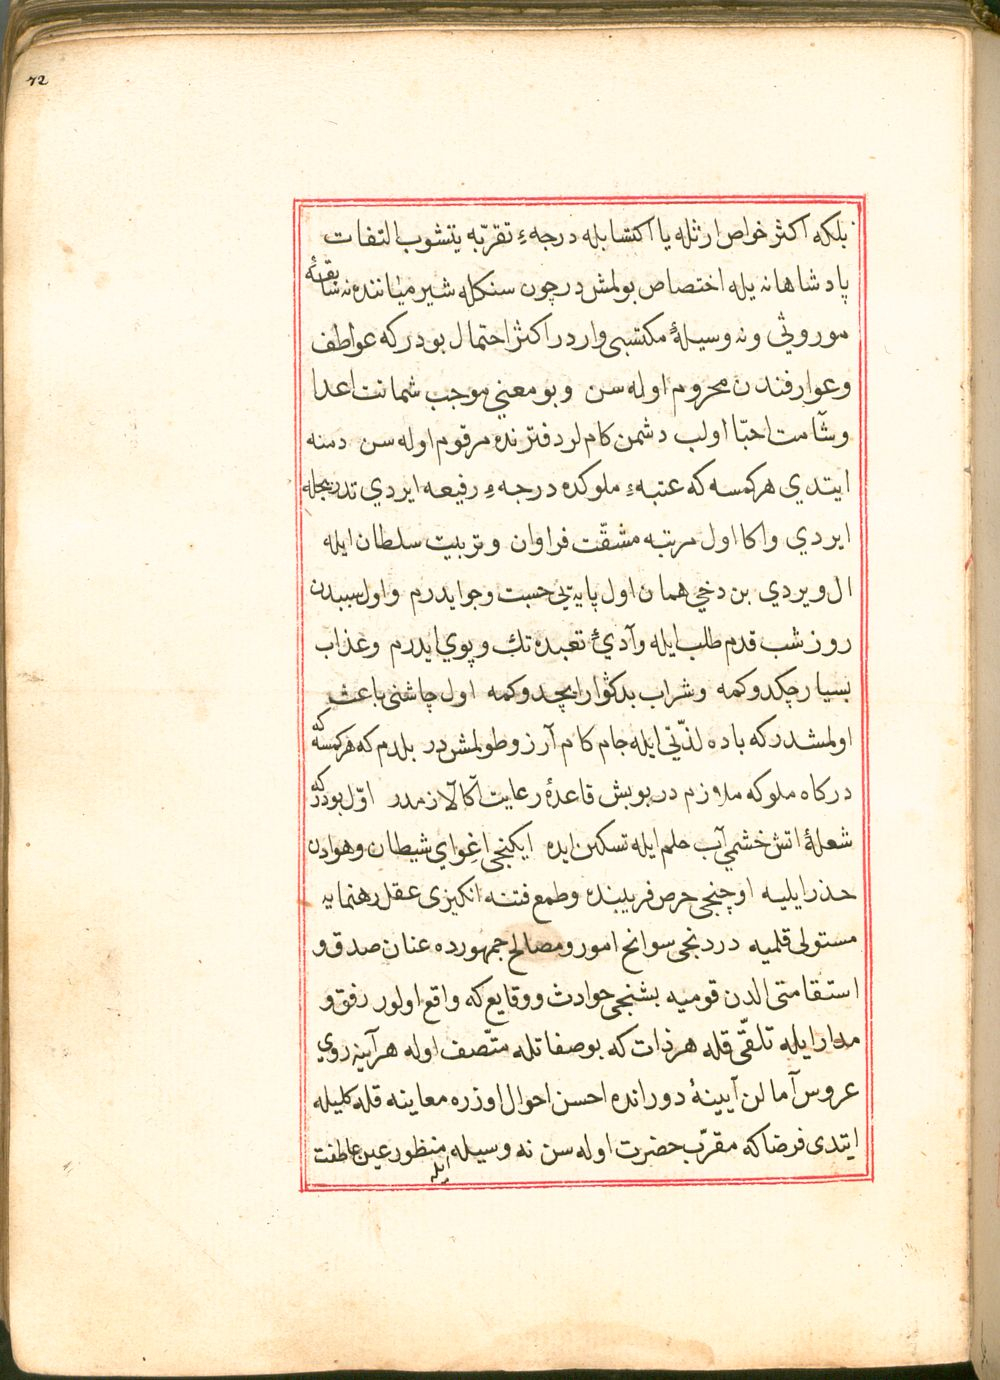 72
بلكه اكثر خواص ارثله يا اكتسابله درجهء تقرّبه يتشوب التفات
پادشاهانه يله اختصاص بولمش در چون سنكله شير مياننده نه سابقهٔ
موروثي و نه وسيلهٔ مكتسبى وار در اكثر احتمال بودر كه عواطف
و عوارفندن محروم اوله سن و بو معني موجب شماتت اعدا
و شآمت احبّا اولب دشمن كام لر دفترنده مرقوم اوله سن دمنه
ايتدي هر كمسه كه عتبهء ملوكده درجهء رفيعه ايردي تدريجله
ايردي و اكا اول مرتبه مشقّت فراوان و تربيت سلطان ايله
ال ويردي بن دخي همان اول پايه يي جست و جو ايدرم و اول سببدن
روز شب قدم طلب ايله وآدئ تعبده تك و پوي ايدرم و عذاب
بسيار چكدوكمه و شراب بدكوار ايچدوكمه اول چاشنى باعث
اولمشدر كه باده لذّتي ايله جام كام آرزو طولمش در بلدم كه هر كمسه كه
دركاه ملوكه ملازم در بو بش قاعدهٔ رعايت اكا لازمدر اوّل بودر كه
شعلهٔ اتش خشمي آب حلم ايله تسكين ايده ايكنجى اغواي شيطان و هوادن
حذر ايليه اوچنجى حرص فريبنده و طمع فتنه انكيزى عقل رهنمايه
مستولى قلميه دردنجى سوانح امور و مصالح جمهورده عنان صدق و
استقامتى الدن قوميه بشنجى حوادث و وقايع كه واقع اولور رفق و
مدارا يله تلقّى قله هر ذات كه بو صفاتله متّصف اوله هر آينه روي
عروس آمالن آيينهٔ دورانده احسن احوال اوزره معاينه قله كليله
ايتدى فرضا كه مقرّب حضرت اوله سن نه وسيله ايله منظور عين عاطفت